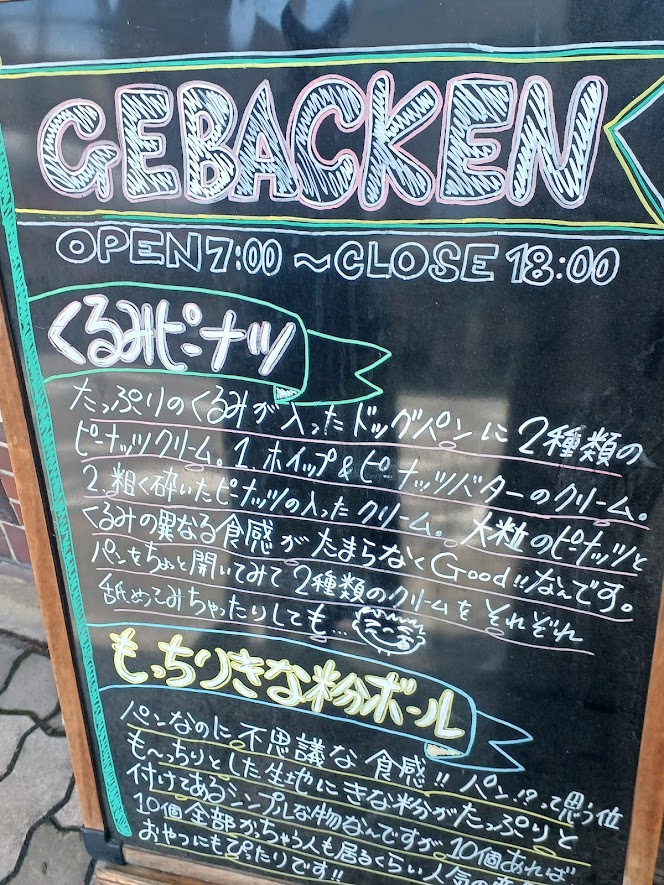 GEBACKEN
OPEN 7:00 ~ CLOSE 18:00
くるみピーナツ
たっぷりのくるみが入ったドッグパンに2種類の
ピーナッツクリーム。1.ホイップ&ピーナッツバターのクリーム。
2.粗く砕いたピーナッツの入ったクリーム。大粒のピーナッツと
くるみの異なる食感がたまらなくGood!!なんです。
パンをちょっと開いてみて2種類のクリームをそれぞれ
舐めてみちゃったりしても…
もっちりきな粉ボール
パンなのに不思議な食感!!パン!?って思う位
も〜っちりとした生地にきな粉がたっぷりと
付けてあるシンプルな物なんですが、10個あれば
10個全部かっちゃう人も居るくらい人気の
おやつにもぴったりです!!